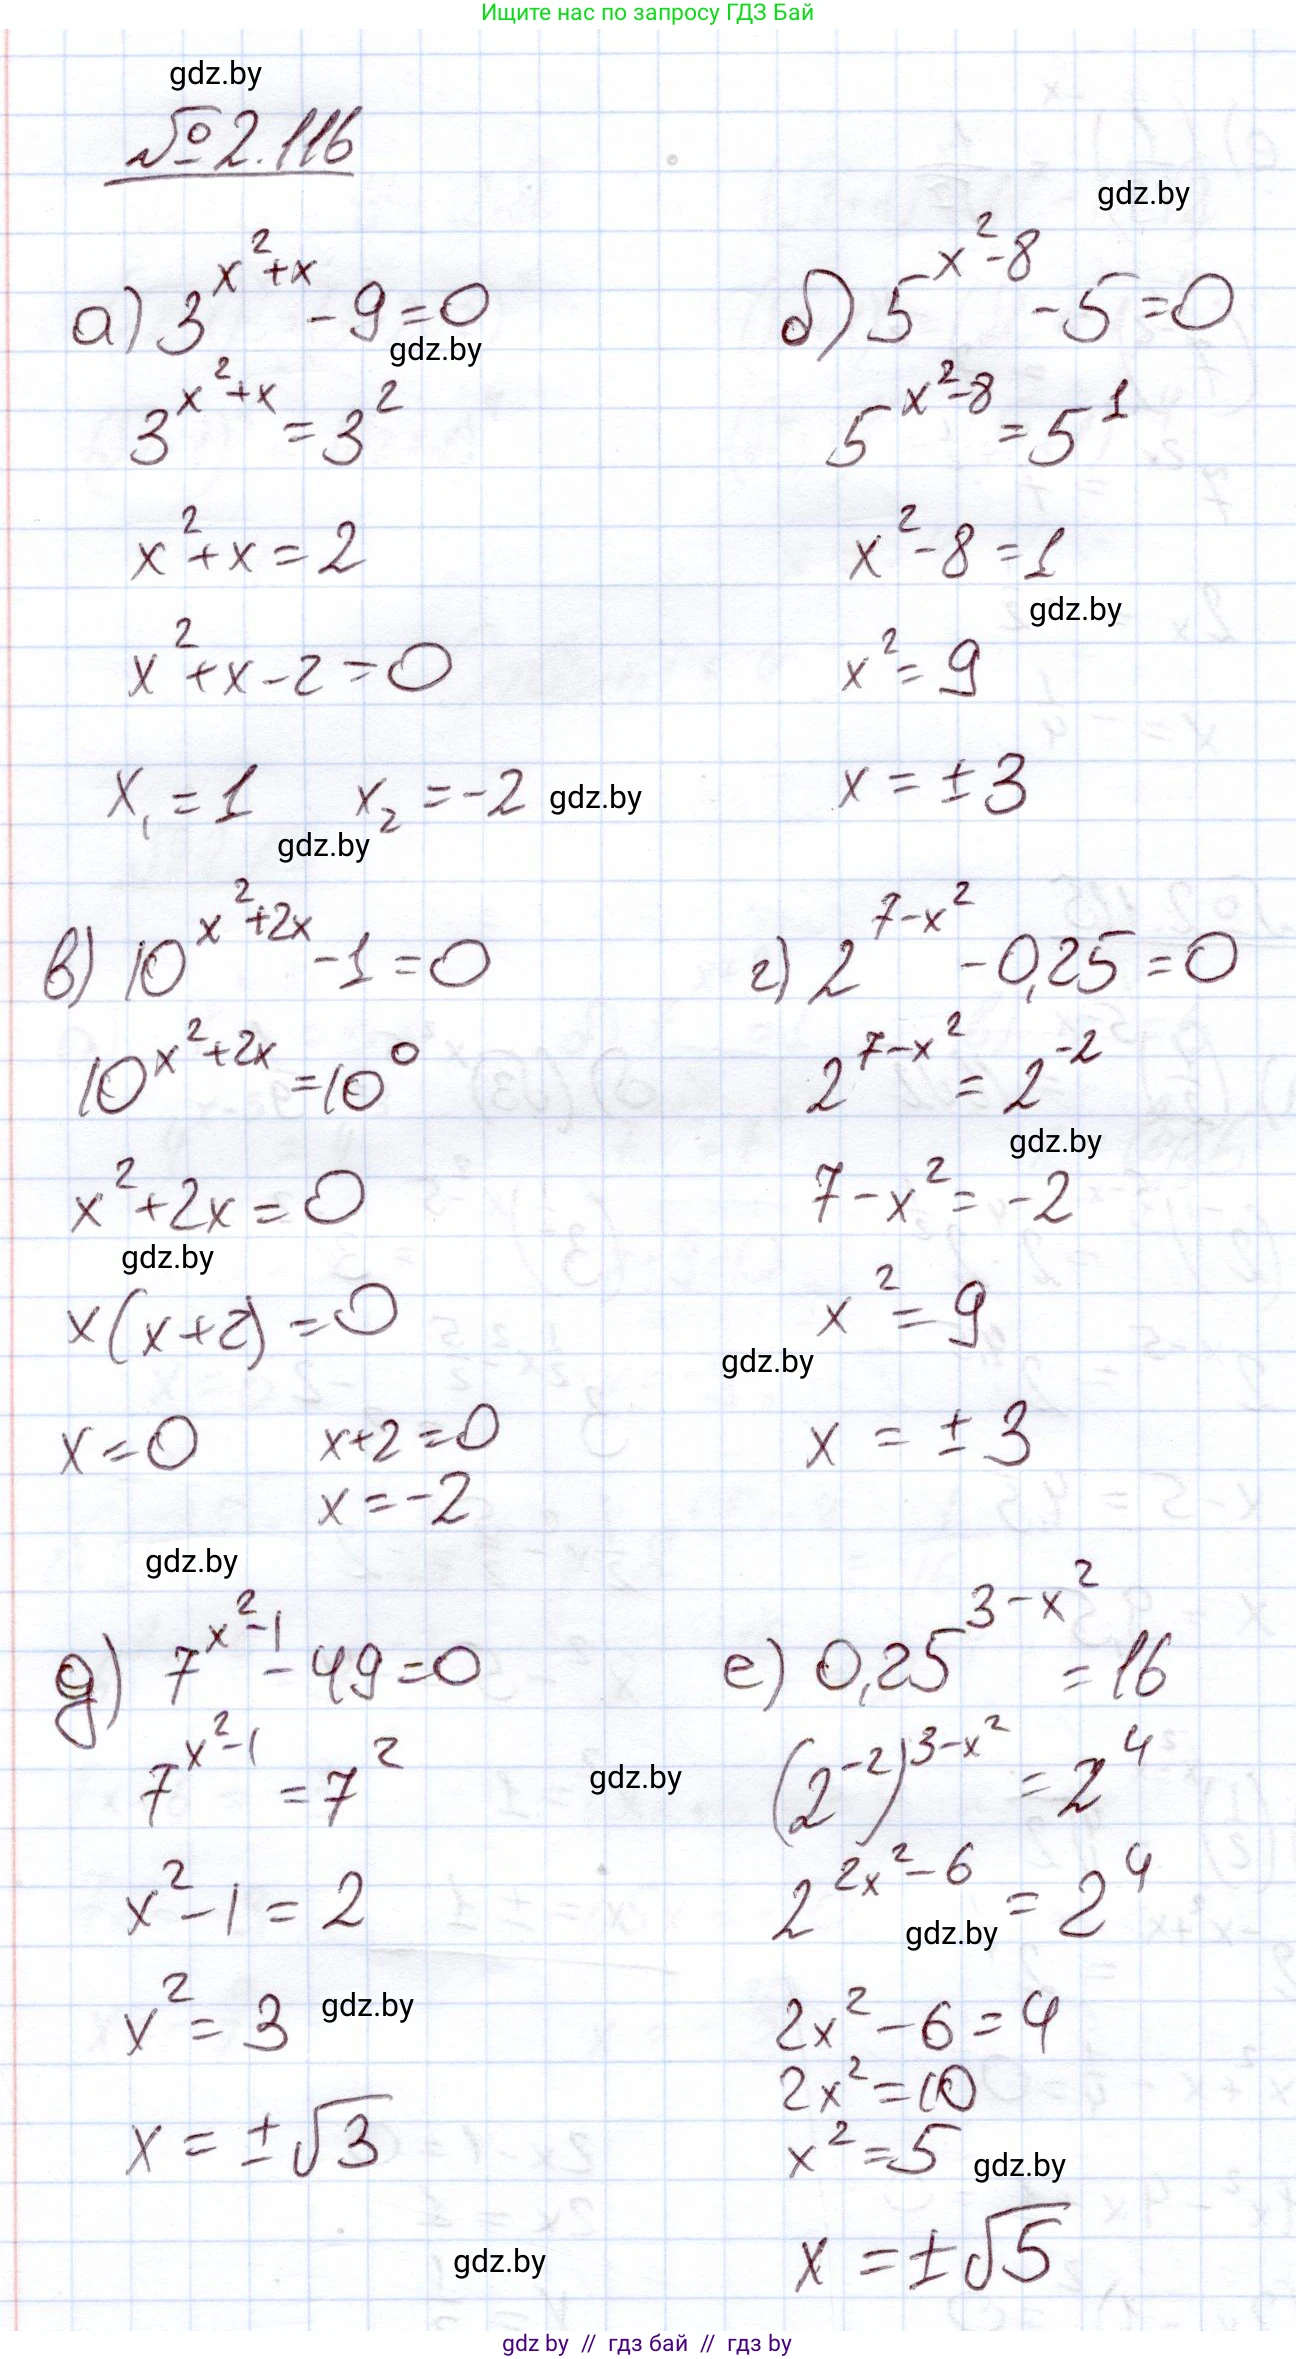 Ищите нас по запросу ГДЗ Бай
gdz.by
№ 2.116
gdz.by
а) 3^(x²+x) - 9 = 0
gdz.by
3^(x²+x) = 3²
x² + x = 2
x² + x - 2 = 0
x₁ = 1 x₂ = -2 gdz.by
gdz.by
б) 5^(x²-8) - 5 = 0
5^(x²-8) = 5¹
x² - 8 = 1
gdz.by
x² = 9
x = ± 3
в) 10^(x²+2x) - 1 = 0
10^(x²+2x) = 10⁰
x² + 2x = 0
gdz.by
x(x+2) = 0
x = 0 x+2 = 0
x = -2
gdz.by
г) 2^(7-x²) - 0,25 = 0
2^(7-x²) = 2⁻²
gdz.by
7 - x² = -2
x² = 9
gdz.by
x = ± 3
д) 7^(x²-1) - 49 = 0
7^(x²-1) = 7²
gdz.by
x² - 1 = 2
x² = 3 gdz.by
x = ±√3
gdz.by
е) 0,25^(3-x²) = 16
(2⁻²)^(3-x²) = 2⁴
2^(2x²-6) = 2⁴
gdz.by
2x² - 6 = 4
2x² = 10
x² = 5 gdz.by
x = ±√5
gdz by // гдз бай // гдз by